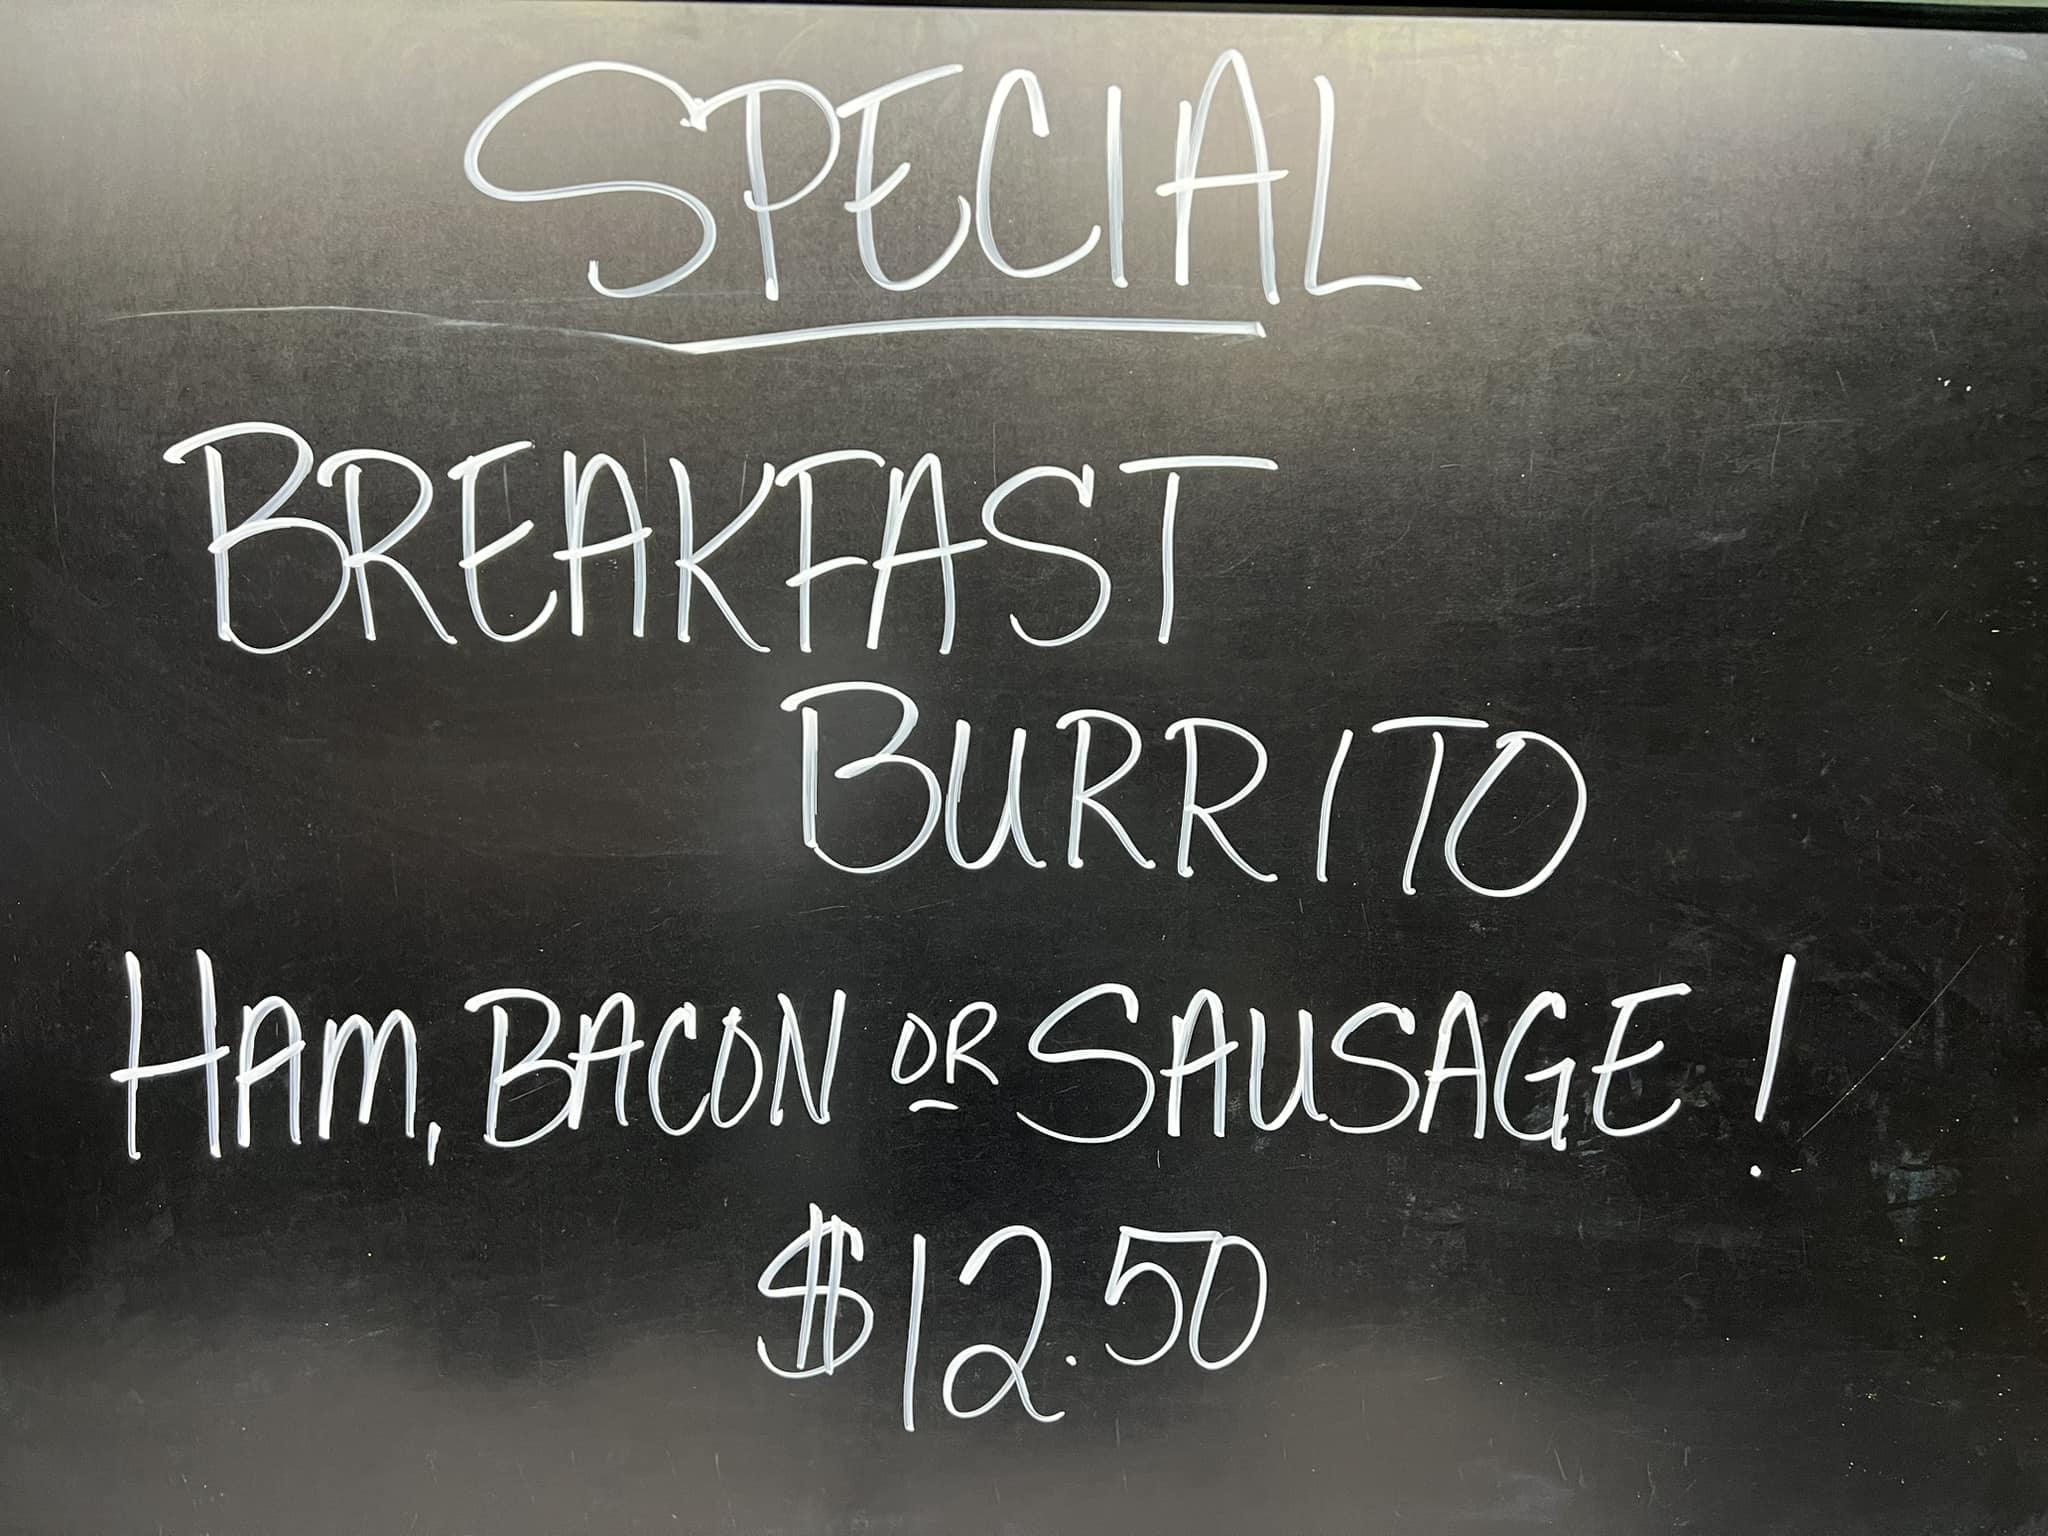 SPECIAL
BREAKFAST
BURRITO
HAM, BACON OR SAUSAGE!
$12.50